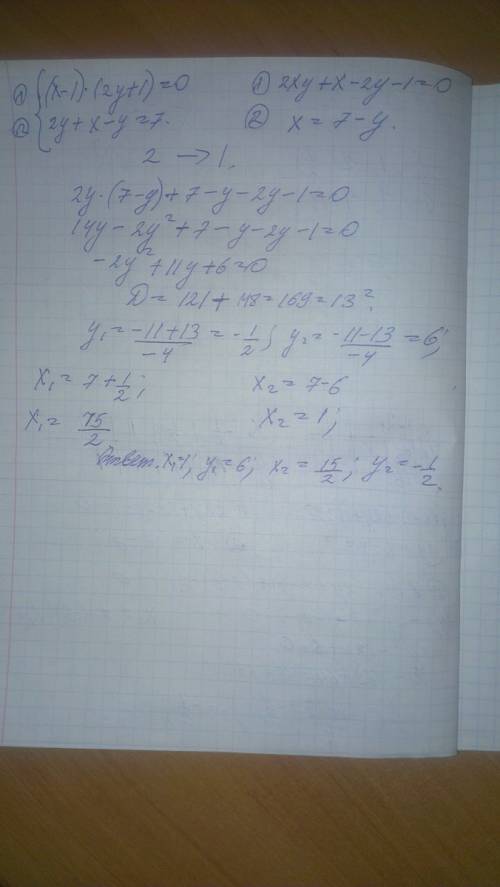 ① { (x-1)·(2y+1)=0 ① 2xy+x-2y-1=0
② { 2y+x-y=7. ② x=7-y.
2 → 1.
2y·(7-y)+7-y-2y-1=0
14y-2y²+7-y-2y-1=0
-2y²+11y+6=0
D=121+48=169=13².
y₁=(-11+13)/(-4)=-1/2; y₂=(-11-13)/(-4)=6;
x₁=7+1/2; x₂=7-6
x₁=15/2 x₂=1;
Ответ. x₁=1; y₁=6; x₂=15/2; y₂=-1/2.